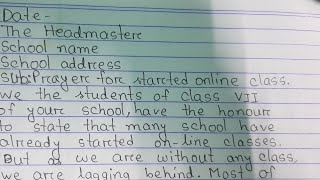 Date-
The Headmasterc
School name
School address
Sub:Prayerc forc starcted online class.
We the students of class VII
of yourc school, have the honour
to state that many school have
already starcted on-line classes.
But as we arce without any class,
we arce lagging behind. Most of